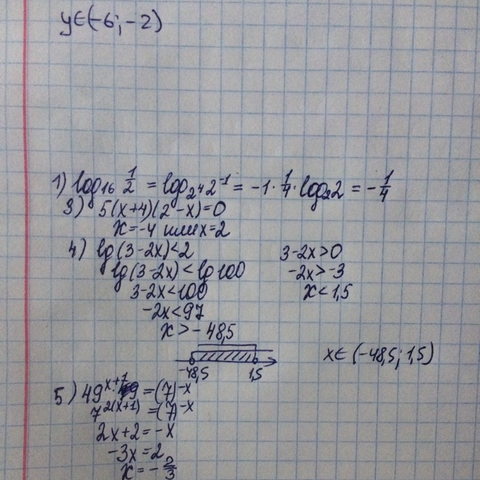 y∈(-6;-2)
1) log₁₆ 1/2 = log₂⁴ 2⁻¹ = -1·1/4·log₂2 = -1/4
3) 5(x+4)(2-x)=0
x=-4 или x=2
4) lg(3-2x)<2
lg(3-2x)<lg100
3-2x<100
-2x<97
x>-48,5
3-2x>0
-2x>-3
x<1,5
-48,5 1,5
x∈(-48,5; 1,5)
5) 49ˣ⁺¹ = (7)⁻ˣ
7²⁽ˣ⁺¹⁾ = (7)⁻ˣ
2x+2=-x
-3x=2
x=-2/3